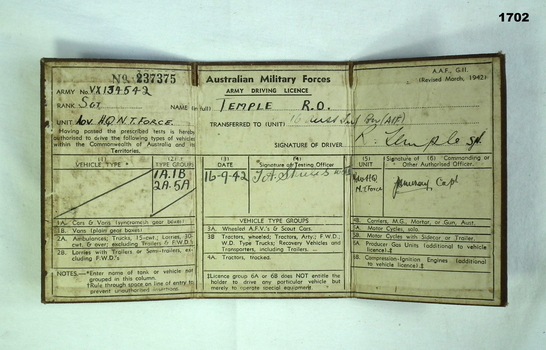 1702
No 237375
ARMY No. VX134542
RANK SGT
UNIT Adv. H.Q. N.T. FORCE.
Having passed the prescribed tests is hereby
authorised to drive the following types of vehicles
within the Commonwealth of Australia and its
Territories.
(1)
VEHICLE TYPE *
(2)
TYPE GROUPS
1A. 1B
2A. 5A
1A. Cars & Vans (synchromesh gear boxes)
1B. Vans (plain gear boxes)
2A. Ambulances; Trucks, 15-cwt.; Lorries, 30-
cwt. & over; excluding Trailers & F.W.D.'s
2B. Lorries with Trailers or Semi-trailers, ex-
cluding F.W.D.'s
NOTES.—*Enter name of tank or vehicle not
grouped in this column.
†Rule through space on line of entry to
prevent unauthorised insertions.
Australian Military Forces
ARMY DRIVING LICENCE
NAME (in full) TEMPLE R.O.
TRANSFERRED TO (UNIT) 16 Aust Inf (AIF)
SIGNATURE OF DRIVER
(3)
DATE
(4)
Signature of Testing Officer
16-9-42
VEHICLE TYPE GROUPS
3A. Wheeled A.F.V.'s & Scout Cars.
3B. Tractors, wheeled; Tractors, Arty; F.W.D.,
W.D. Type Trucks; Recovery Vehicles and
Transporters, including Trailers.
4A. Tractors, tracked.
‡Licence group 6A or 6B does NOT entitle
holder to drive any particular vehicle but
merely to operate special equipment.
A.A.F., G.11.
(Revised March, 1942)
R. Temple Sgt
(5)
UNIT
Signature of (6) Commanding or
Other Authorised Officer.
Adv HQ
N.T. Force
Capt
4B. Carriers, M.G., Mortar, or Gun, Aust.
5A. Motor Cycles, solo.
5B. Motor Cycles with Sidecar or Trailer.
6A. Producer Gas Units (additional to vehicle
licence).‡
6B. Compression-Ignition Engines (additional
to vehicle licence).‡